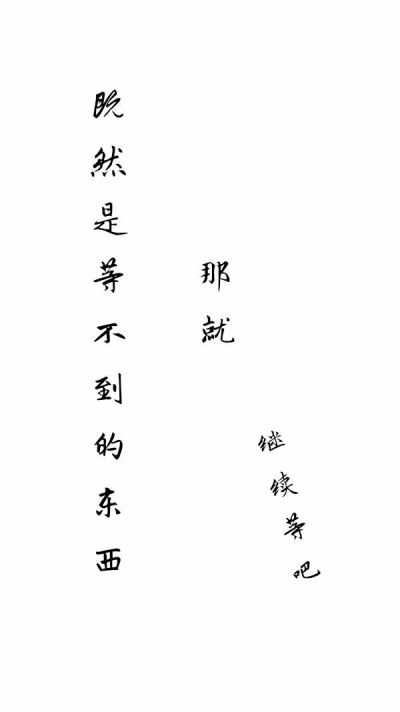 既然是等不到的东西
那就
继续等吧